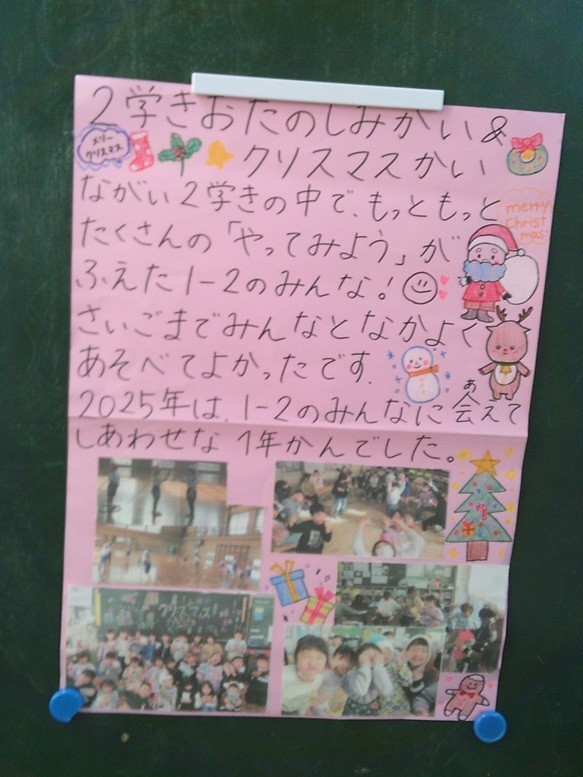 2学きおたのしみかい&
メリー
クリスマス
クリスマスかい
ながい2学きの中で、もっともっと
merry
Christ
mas
たくさんの「やってみよう」が
ふえた1-2のみんな!
さいごまでみんなとなかよく
あそべてよかったです.
2025年は、1-2のみんなに会えて
あ
しあわせな1年かんでした。
クリスマス